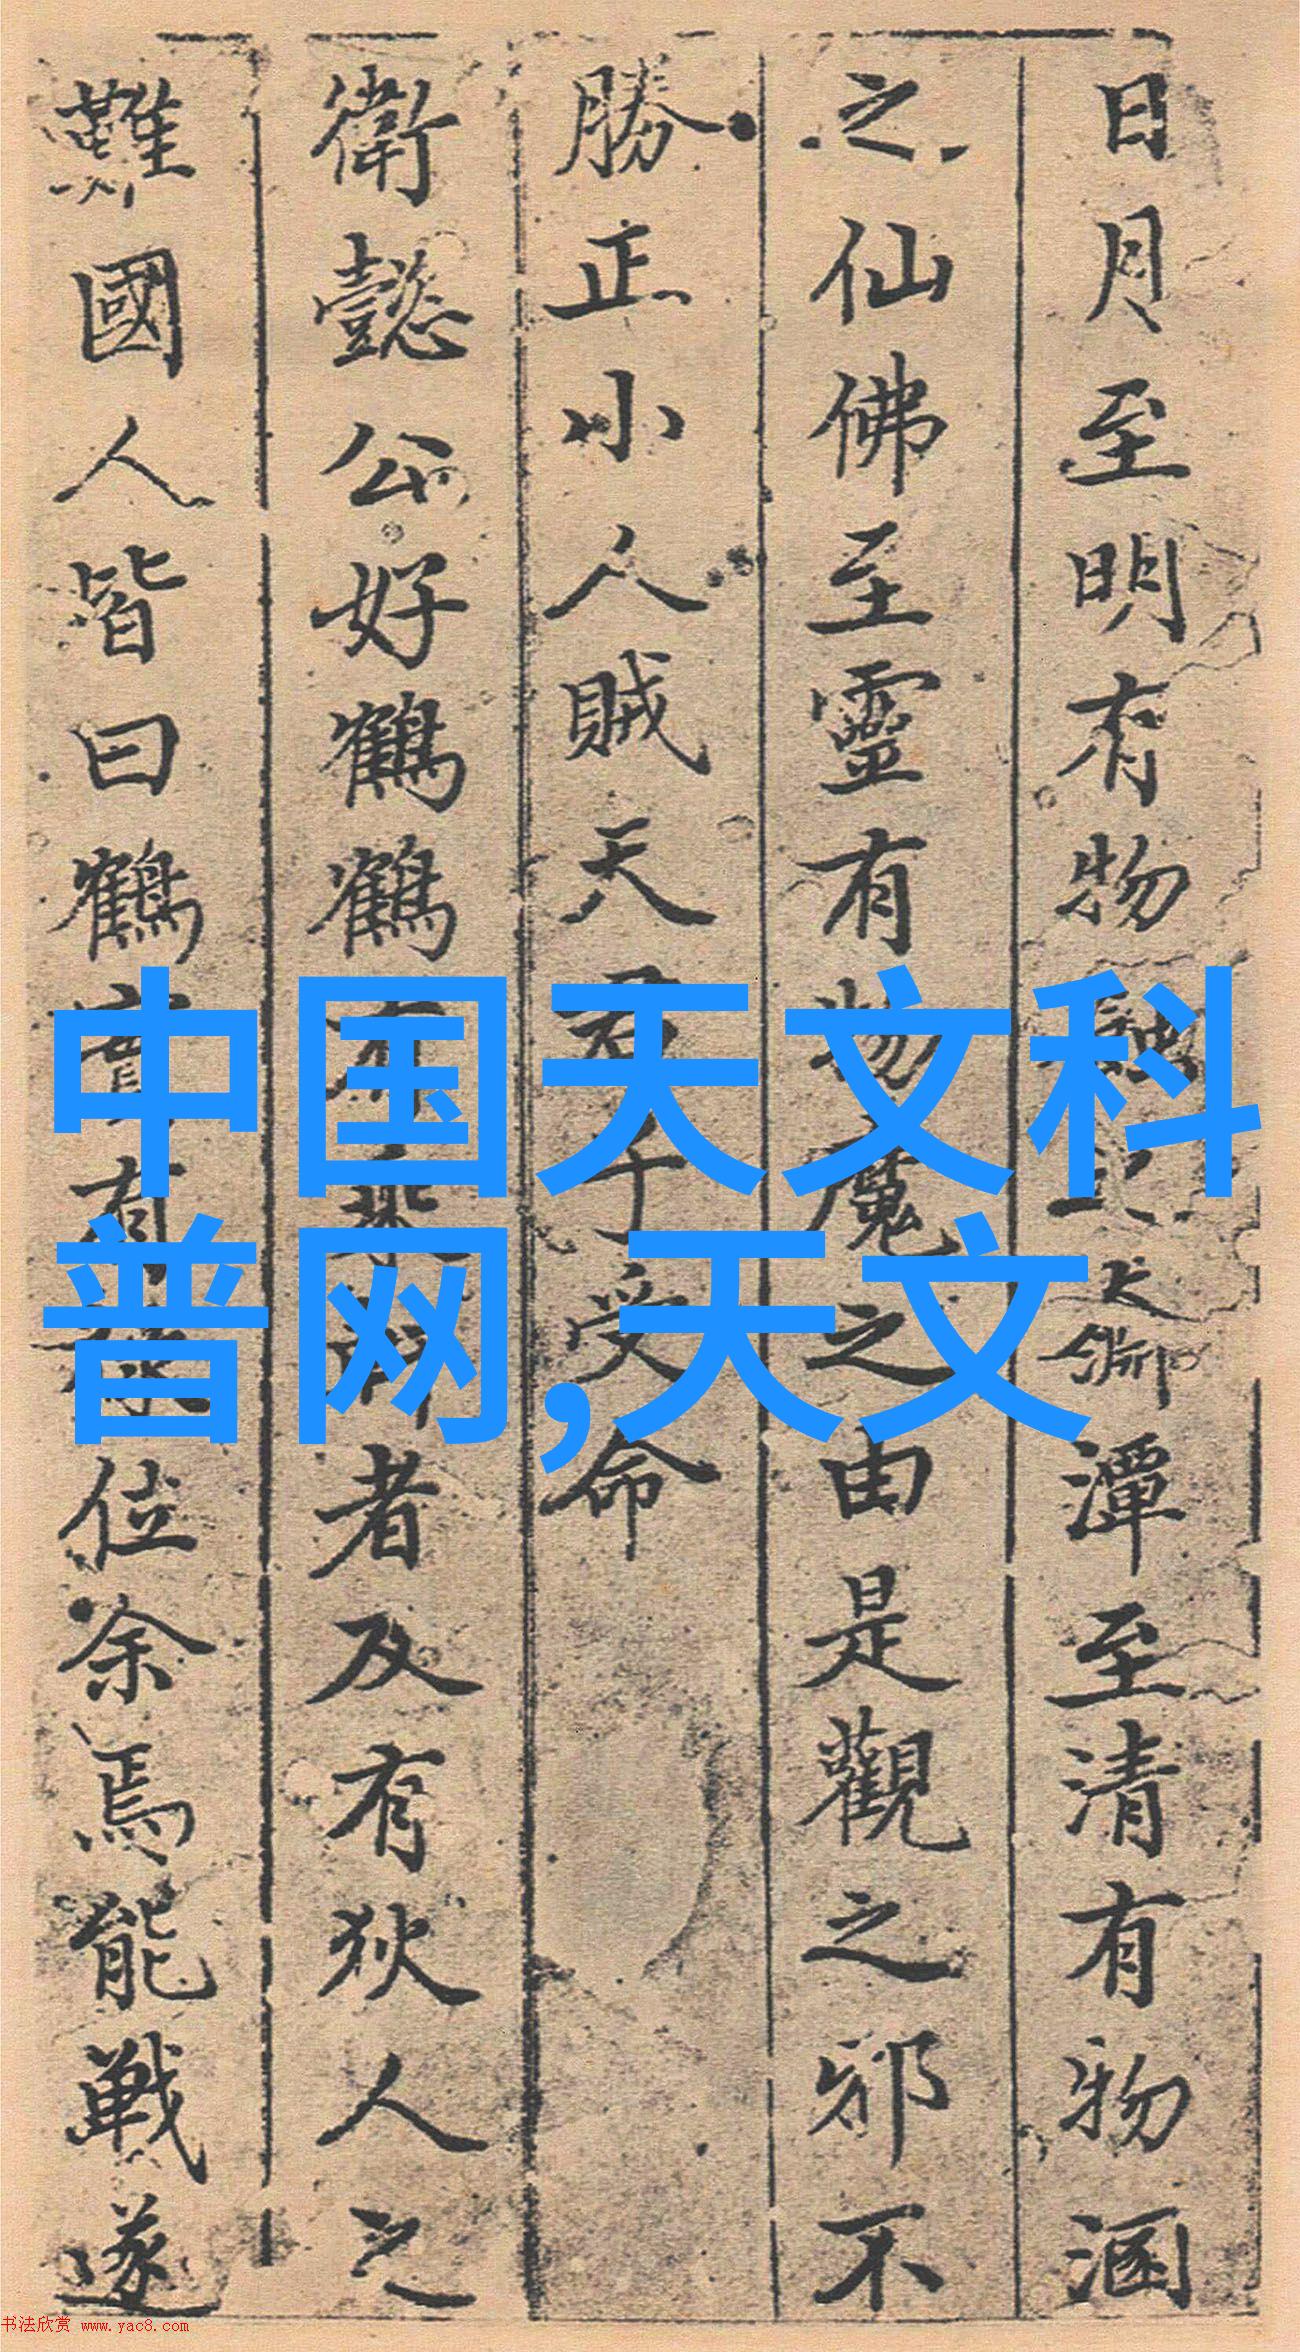 日月至明有物蝕之大淵潭至清有物涵
之仙佛至靈有物魔之由是觀之邪不
勝正小人賊天君子受命
衛懿公好鶴鶴有乘軒者及有狄人之
難國人皆曰鶴實有祿位余焉能戰遂
中国天文科
普网,天文
书法欣赏 www.yac8.com